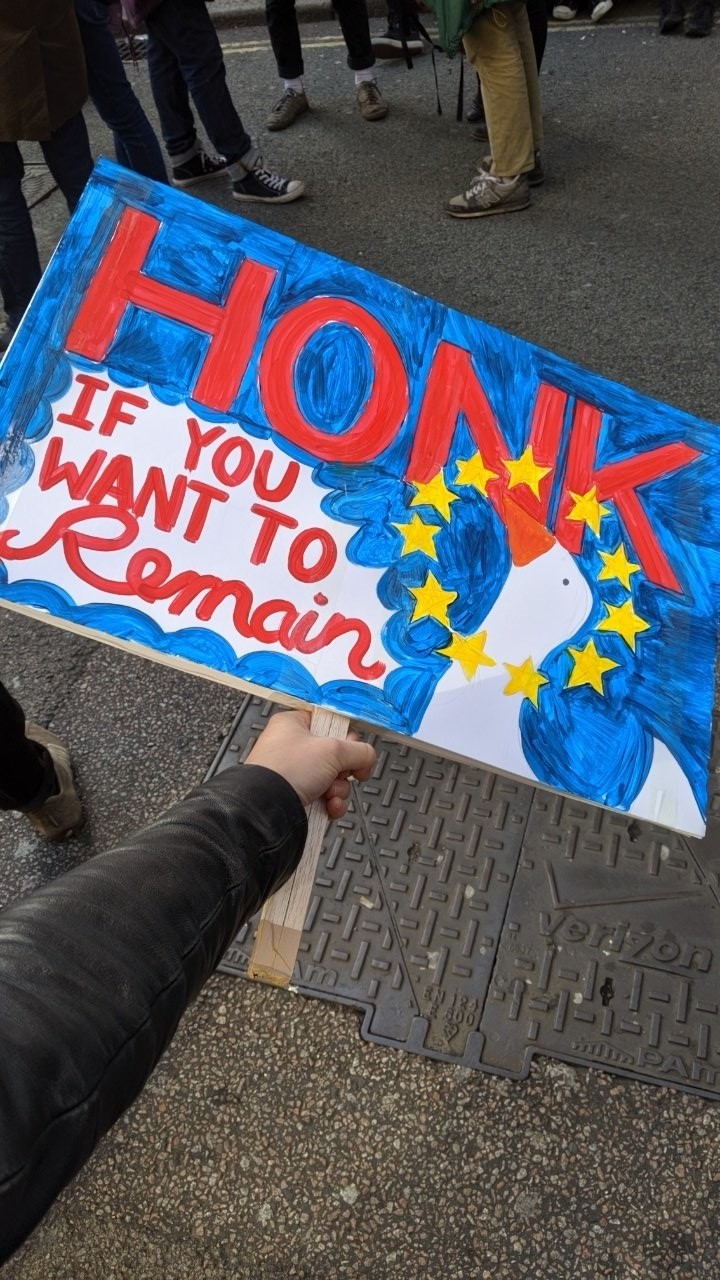 HONK
IF YOU
WANT TO
Remain
verizon
EN 124
PAm